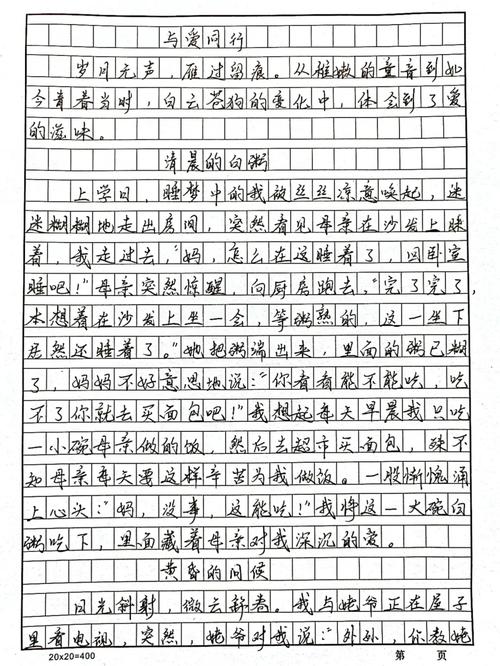 与爱同行
岁月无声，雁过留痕。从稚嫩的童音到如
今青春当时，白云苍狗的变化中，体会到了爱
的滋味。
清晨的白粥
上学日，睡梦中的我被丝丝凉意唤起，迷
迷糊糊地走出房间，突然看见母亲在沙发上睡
着，我走过去，“妈，怎么在这睡着了，回卧室
睡吧！”母亲突然惊醒，向厨房跑去，“完了完了，
本想着在沙发上坐一会，等粥熟的，这一坐下
居然还睡着了。”她把粥端出来，里面的粥已糊
了，妈妈不好意思地说：“你看看能不能吃，吃
不了你就去买面包吧！”我想起每天早晨我只吃
一小碗母亲做的饭，然后去超市买面包，殊不
知母亲每天要这样辛苦为我做饭。一股惭愧涌
上心头：“妈，没事，这能吃！”我将这一大碗白
粥吃下，里面藏着母亲对我深沉的爱。
黄昏的问候
日光斜射，微云舒卷。我与姥爷正在屋子
里看电视，突然，姥爷对我说：“外孙，你教姥
20×20=400 第 页